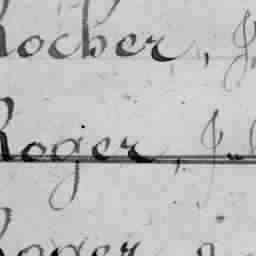 Rocher, J
Roger, J.
Roger